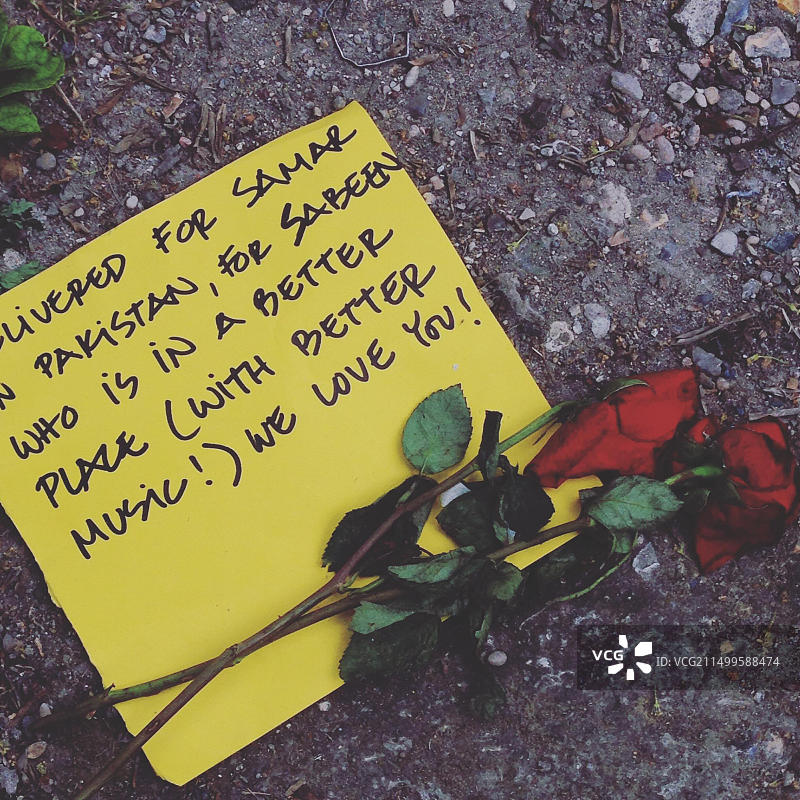 DELIVERED FOR SAMAR
IN PAKISTAN, FOR SABEEN
WHO IS IN A BETTER
PLACE (WITH BETTER
MUSIC!) WE LOVE YOU!
VCG
ID: VCG211499588474